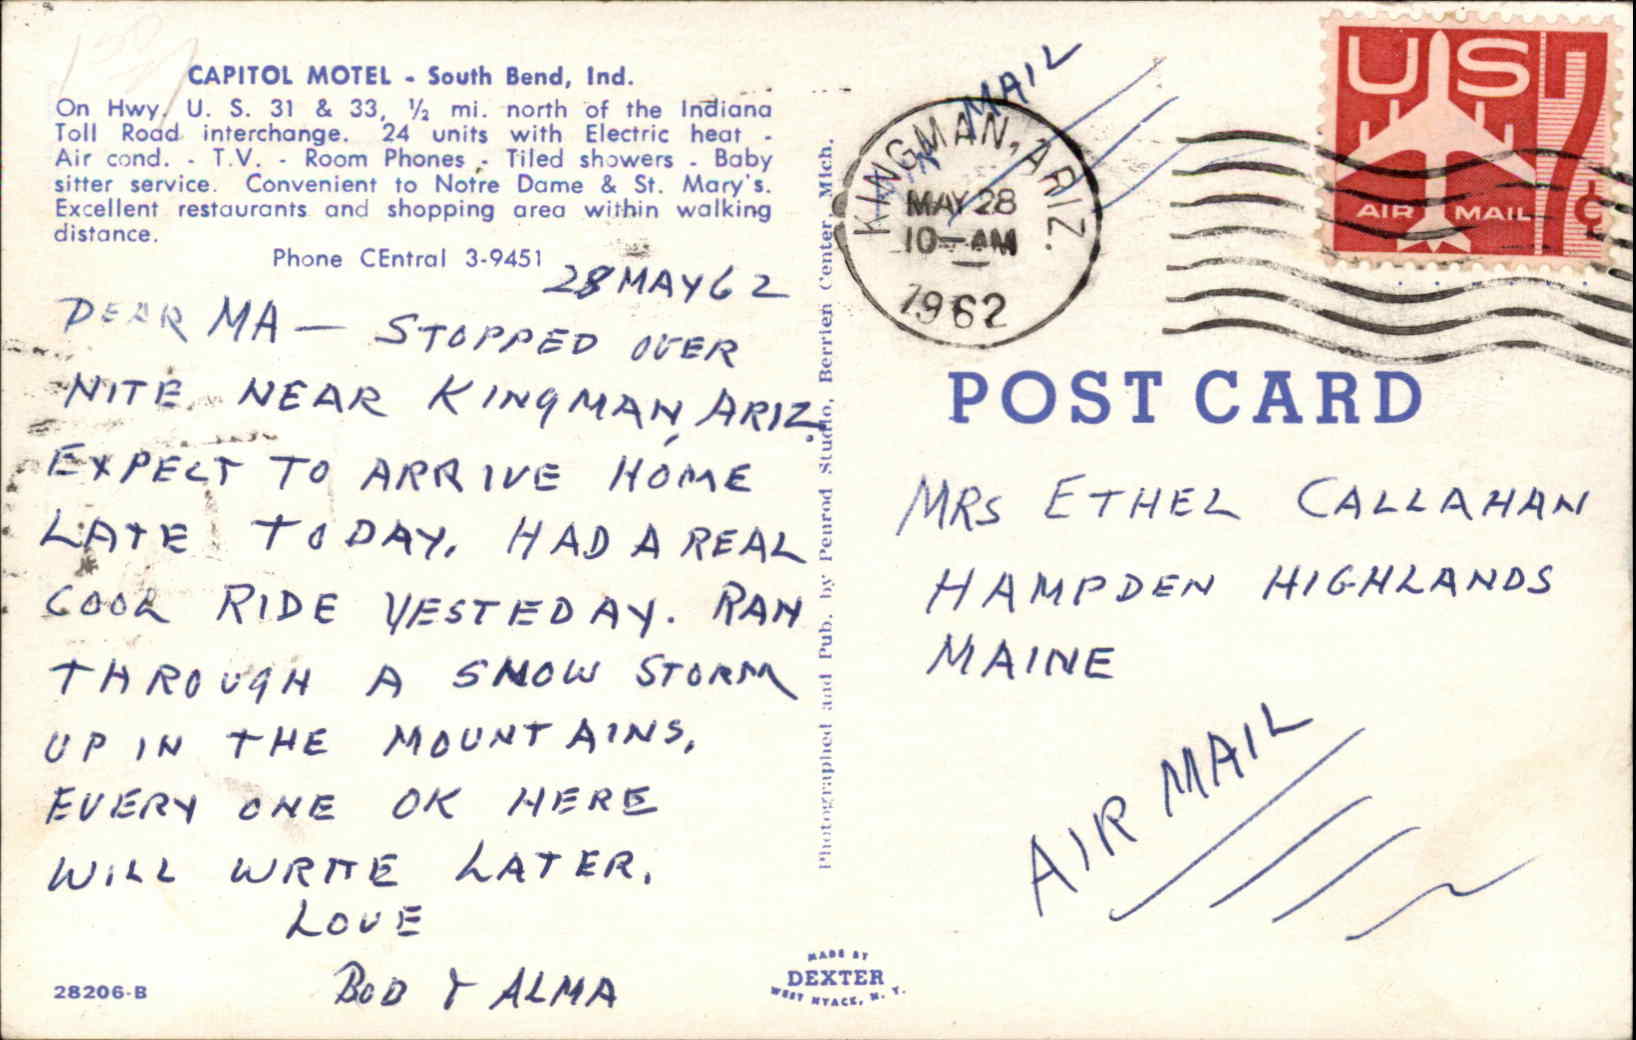 CAPITOL MOTEL - South Bend, Ind.
On Hwy. U. S. 31 & 33, ½ mi. north of the Indiana
Toll Road interchange. 24 units with Electric heat -
Air cond. - T.V. - Room Phones - Tiled showers - Baby
sitter service. Convenient to Notre Dame & St. Mary's.
Excellent restaurants and shopping area within walking
distance.
Phone CEntral 3-9451
28 MAY 62
DEAR MA — STOPPED OVER
NITE NEAR KINGMAN, ARIZ.
EXPECT TO ARRIVE HOME
LATE TODAY. HAD A REAL
COOL RIDE YESTEDAY. RAN
THROUGH A SNOW STORM
UP IN THE MOUNTAINS.
EVERY ONE OK HERE
WILL WRITE LATER.
LOVE
BOD & ALMA
28206-B
Photographed and Pub. by Penrod Studio, Berrien Center, Mich.
MADE BY
DEXTER
WEST NYACK, N. Y.
MAIL
KINGMAN, ARIZ.
MAY 28
10-AM
1962
US 7¢
AIR MAIL
POST CARD
MRS ETHEL CALLAHAN
HAMPDEN HIGHLANDS
MAINE
AIR MAIL